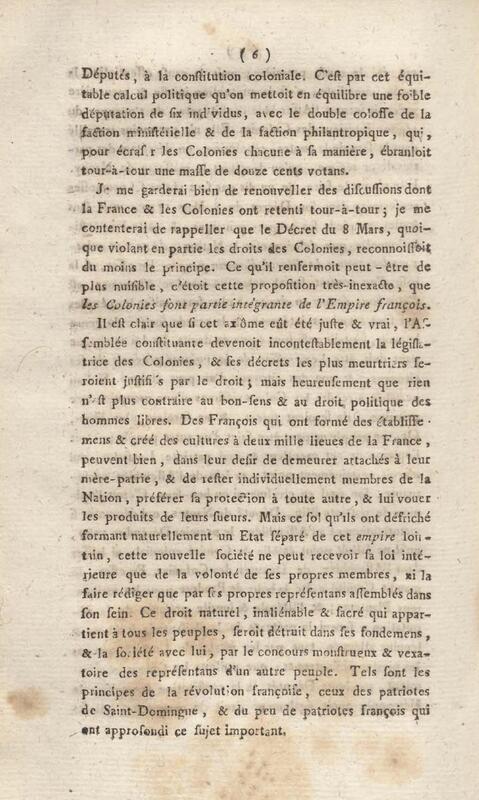 ( 6 )
Députés, à la constitution coloniale. C'est par cet équi-
table calcul politique qu'on mettoit en équilibre une foible
députation de six individus, avec le double colosse de la
faction ministérielle & de la faction philantropique, qui,
pour écraser les Colonies chacune à sa manière, ébranloit
tour-à-tour une masse de douze cents votans.
Je me garderai bien de renouveller des discussions dont
la France & les Colonies ont retenti tour-à-tour; je me
contenterai de rappeller que le Décret du 8 Mars, quoi-
que violant en partie les droits des Colonies, reconnoissoit
du moins le principe. Ce qu'il renfermoit peut-être de
plus nuisible, c'étoit cette proposition très-inexacte, que
les Colonies font partie intégrante de l'Empire françois.
Il est clair que si cet axiôme eût été juste & vrai, l'As-
semblée constituante devenoit incontestablement la législa-
trice des Colonies, & ses décrets les plus meurtriers se-
roient justifiés par le droit; mais heureusement que rien
n'est plus contraire au bon-sens & au droit politique des
hommes libres. Des François qui ont formé des établisse-
mens & créé des cultures à deux mille lieues de la France,
peuvent bien, dans leur desir de demeurer attachés à leur
mère-patrie, & de rester individuellement membres de la
Nation, préférer sa protection à toute autre, & lui vouer
les produits de leurs sueurs. Mais ce sol qu'ils ont défriché
formant naturellement un Etat séparé de cet empire loin-
tain, cette nouvelle société ne peut recevoir sa loi inté-
rieure que de la volonté de ses propres membres, ni la
faire rédiger que par ses propres représentans assemblés dans
son sein. Ce droit naturel, inaliénable & sacré qui appar-
tient à tous les peuples, seroit détruit dans ses fondemens,
& la société avec lui, par le concours monstrueux & vexa-
toire des représentans d'un autre peuple. Tels sont les
principes de la révolution françoise, ceux des patriotes
de Saint-Domingue, & du peu de patriotes françois qui
ont approfondi ce sujet important.